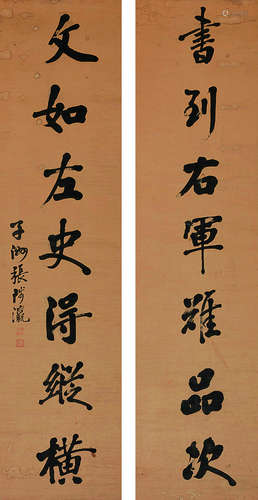 書到右軍難品次
文如左史得縱橫
子洲張